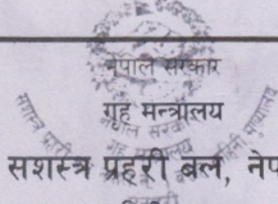 नेपाल सरकार
गृह मन्त्रालय
सशस्त्र प्रहरी बल, नेप